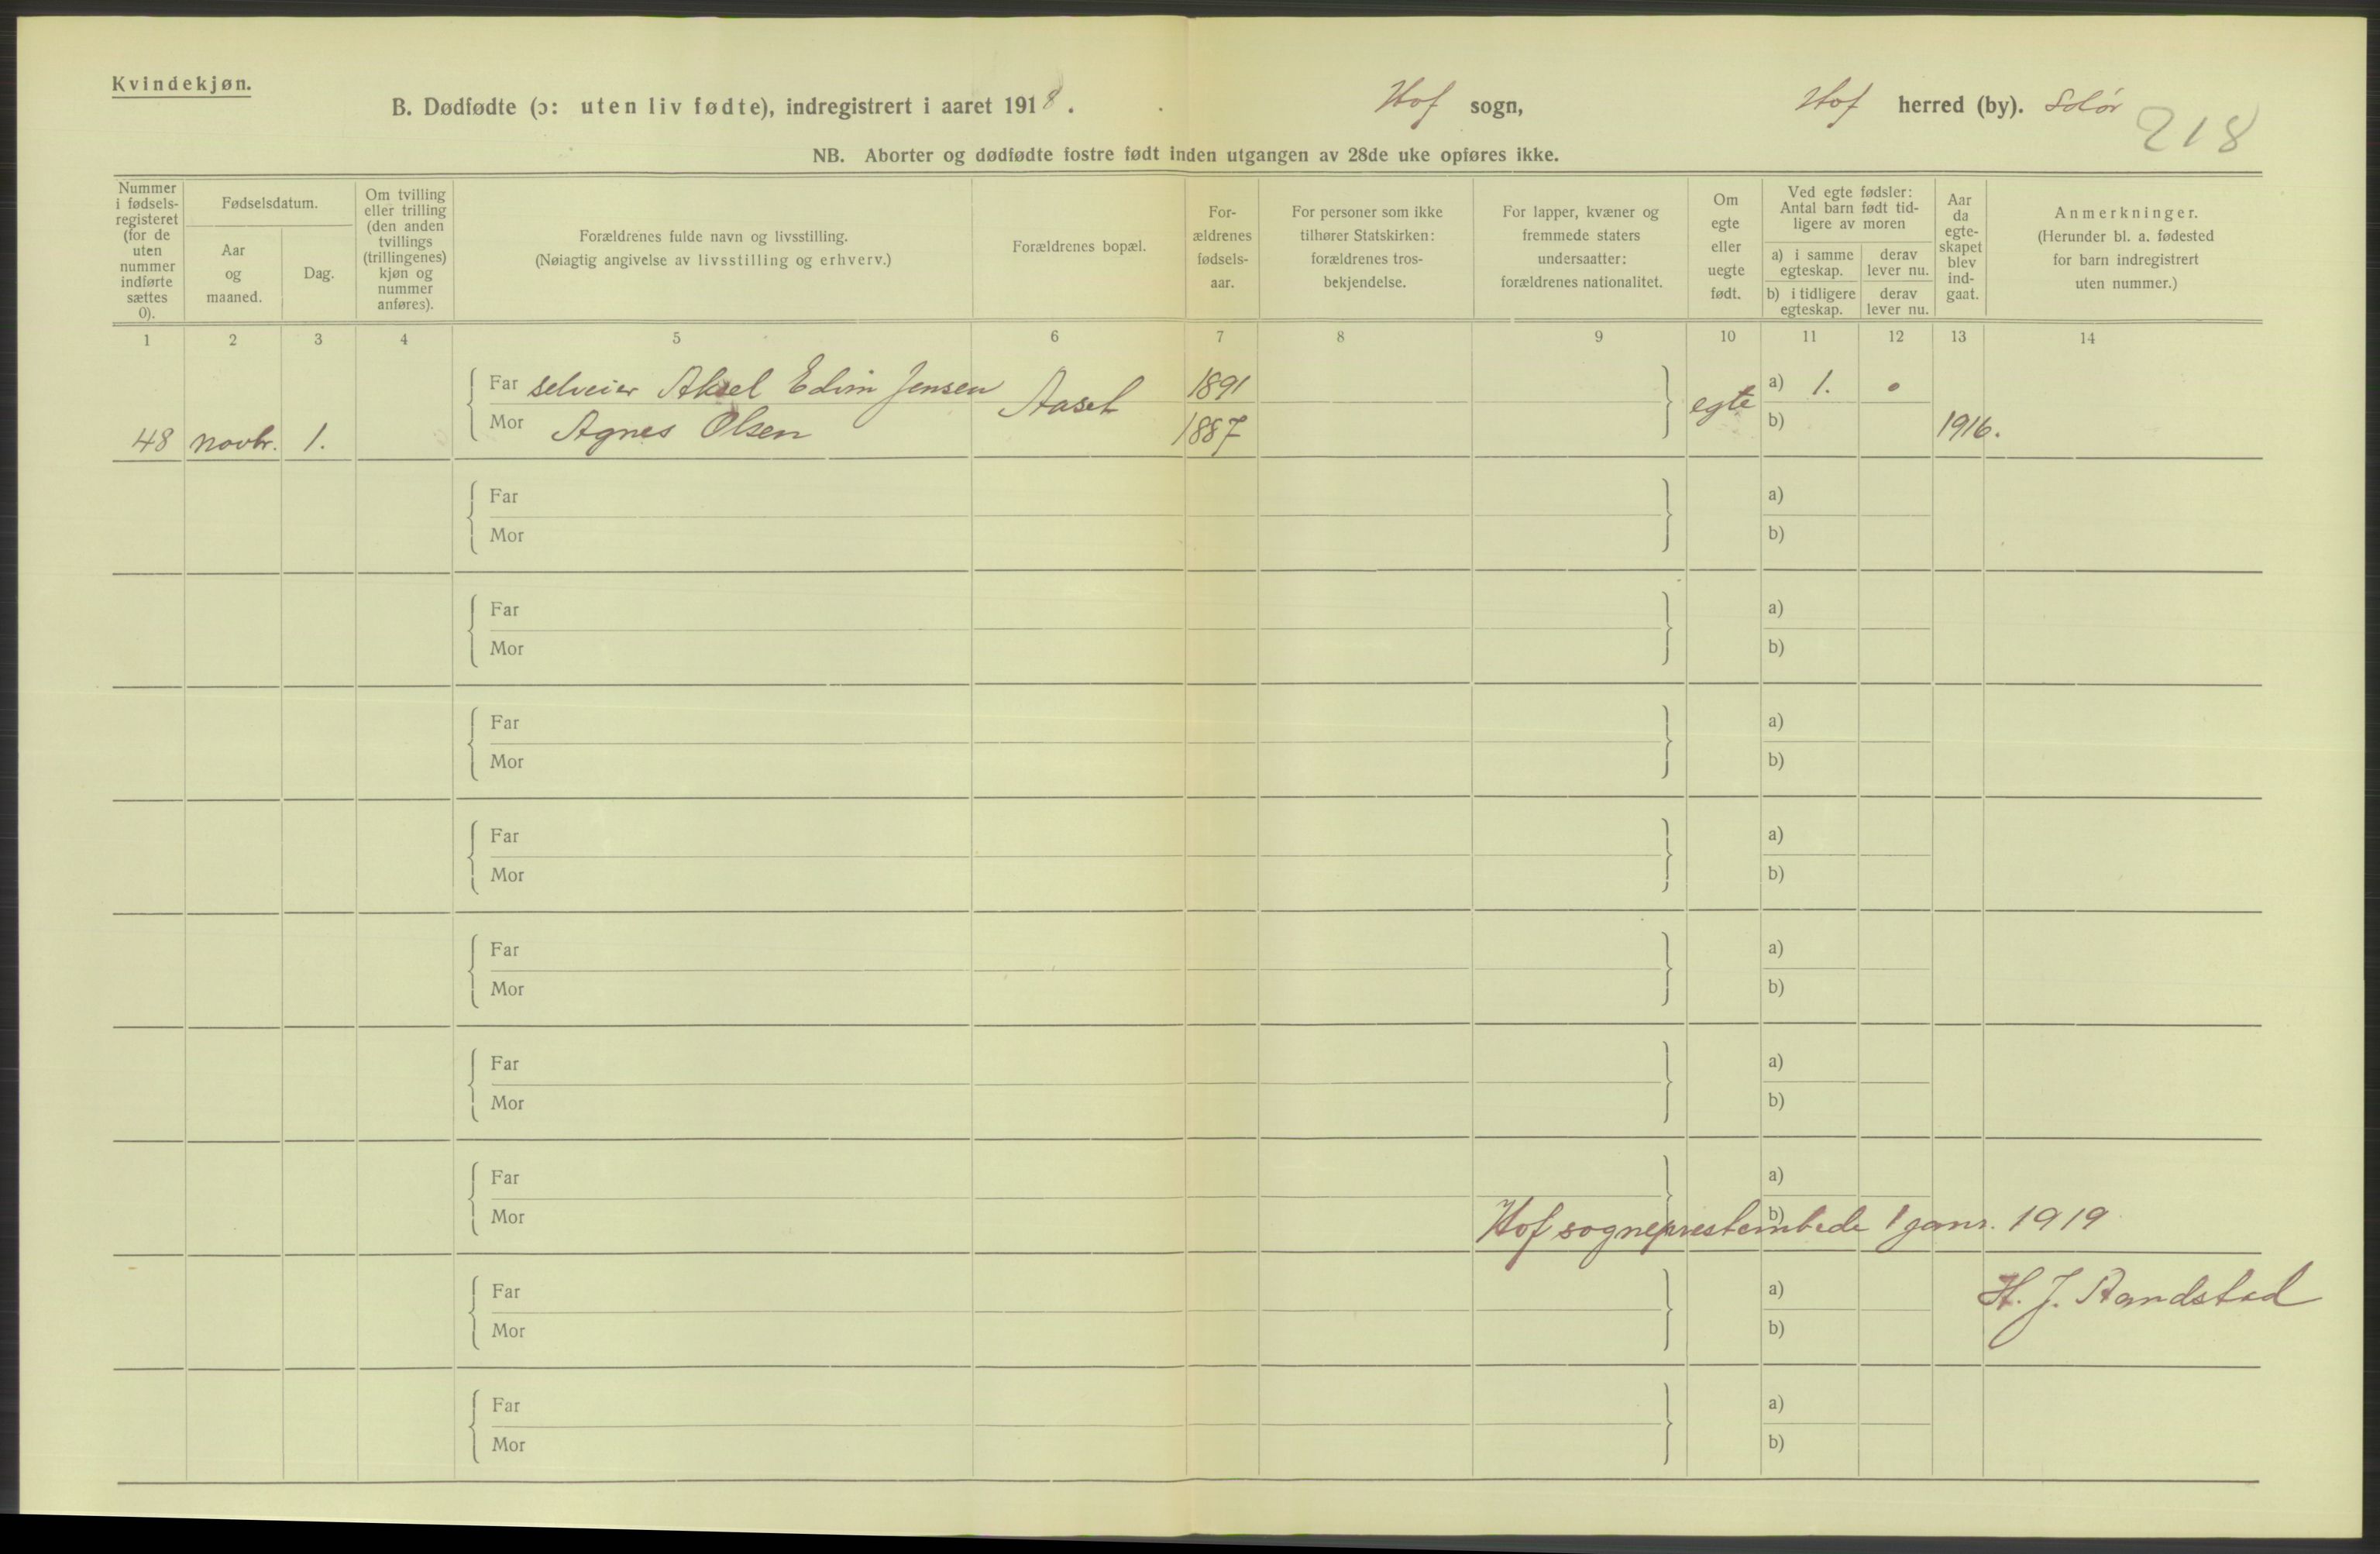 Kvindekjøn.
B. Dødfødte (ɔ: uten liv fødte), indregistrert i aaret 1918.
Hof sogn,
Hof herred (by). Solør
218
NB. Aborter og dødfødte fostre født inden utgangen av 28de uke opføres ikke.
Nummer
i fødsels-
registeret
(for de
uten
nummer
indførte
sættes
0).
Fødselsdatum.
Aar
og
maaned.
Dag.
Om tvilling
eller trilling
(den anden
tvillings
(trillingenes)
kjøn og
nummer
anføres).
Forældrenes fulde navn og livsstilling.
(Nøiagtig angivelse av livsstilling og erhverv.)
Forældrenes bopæl.
For-
ældrenes
fødsels-
aar.
For personer som ikke
tilhører Statskirken:
forældrenes tros-
bekjendelse.
For lapper, kvæner og
fremmede staters
undersaatter:
forældrenes nationalitet.
Om
egte
eller
uegte
født.
Ved egte fødsler:
Antal barn født tid-
ligere av moren
a) i samme
egteskap.
derav
lever nu.
b) i tidligere
egteskap.
derav
lever nu.
Aar
da
egte-
skapet
blev
ind-
gaat.
Anmerkninger.
(Herunder bl. a. fødested
for barn indregistrert
uten nummer.)
1 2 3 4 5 6 7 8 9 10 11 12 13 14
Far selveier Aksel Edvin Jensen Aaset 1891 egte a) 1.
48 novbr. 1. Mor Agnes Olsen 1887 b) 1916.
Far a)
Mor b)
Far a)
Mor b)
Far a)
Mor b)
Far a)
Mor b)
Far a)
Mor b)
Far a)
Mor b)
Far a)
Mor b)
Hof sogneprestembede 1 janr. 1919
Far a)
H. J. Randstad
Mor b)
Far a)
Mor b)